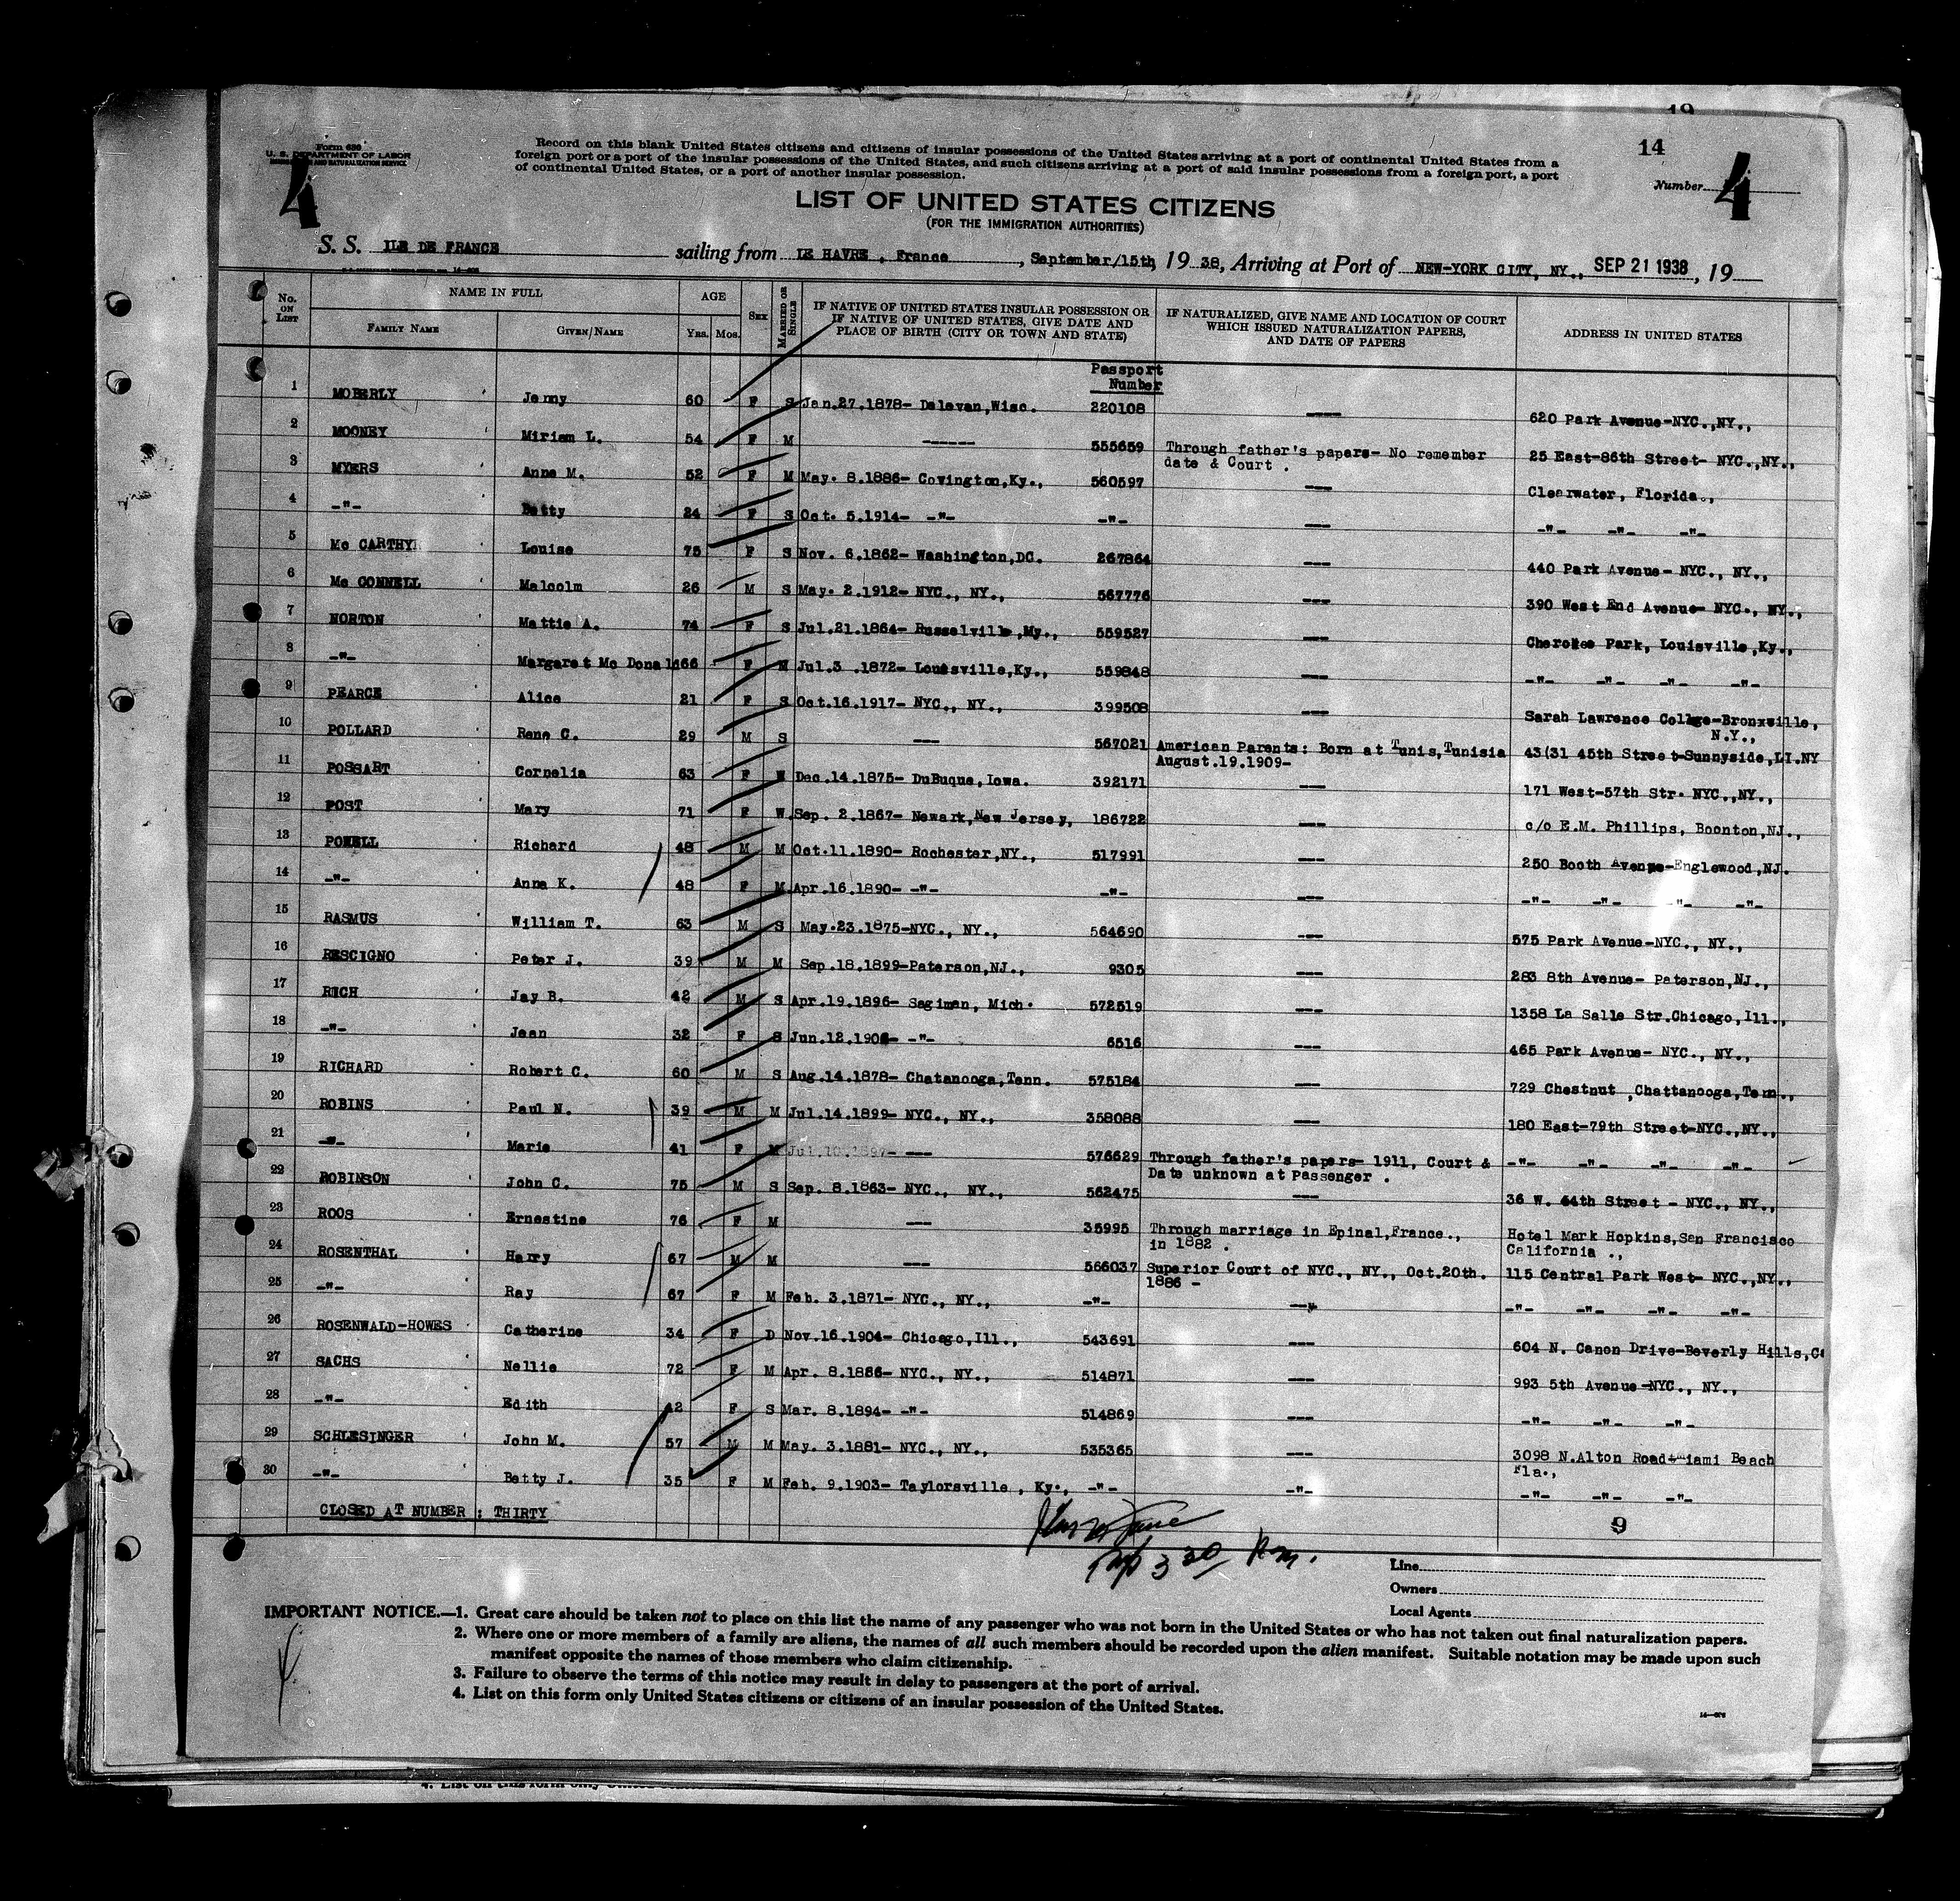 19
14
Form 630
U. S. DEPARTMENT OF LABOR
IMMIGRATION AND NATURALIZATION SERVICE
Record on this blank United States citizens and citizens of insular possessions of the United States arriving at a port of continental United States from a
foreign port or a port of the insular possessions of the United States, and such citizens arriving at a port of said insular possessions from a foreign port, a port
of continental United States, or a port of another insular possession.
4
Number 4
LIST OF UNITED STATES CITIZENS
(FOR THE IMMIGRATION AUTHORITIES)
S. S. ILE DE FRANCE sailing from LE HAVRE , France , September/15th, 19 38, Arriving at Port of NEW-YORK CITY, NY., SEP 21 1938 , 19
No. ON LIST
NAME IN FULL
FAMILY NAME
GIVEN/NAME
AGE
Yrs. Mos.
SEX
MARRIED OR SINGLE
IF NATIVE OF UNITED STATES INSULAR POSSESSION OR
IF NATIVE OF UNITED STATES, GIVE DATE AND
PLACE OF BIRTH (CITY OR TOWN AND STATE)
IF NATURALIZED, GIVE NAME AND LOCATION OF COURT
WHICH ISSUED NATURALIZATION PAPERS,
AND DATE OF PAPERS
ADDRESS IN UNITED STATES
Passport
Number
1 MOBERLY Jenny 60 F S Jan.27.1878- Delavan,Wisc. 220108 ---- 620 Park Avenue-NYC.,NY.,
2 MOONEY Miriam L. 54 F M ------ 555659 Through father's papers- No remember 25 East-86th Street- NYC.,NY.,
date & Court .
3 MYERS Anna M. 52 F M May. 8.1886- Covington,Ky., 560597 --- Clearwater, Florida.,
4 -"- Betty 24 F S Oct. 5.1914- -"- -"- --- -"- -"- -"-
5 Mc CARTHY Louise 75 F S Nov. 6.1862- Washington,DC. 267864 --- 440 Park Avenue- NYC., NY.,
6 Mc CONNELL Malcolm 26 M S May. 2.1912- NYC., NY., 567776 --- 390 West End Avenue- NYC., NY.,
7 NORTON Mattie A. 74 F S Jul.21.1864- Russelville,My., 559527 --- Cherokee Park, Louisville,Ky.,
8 -"- Margaret Mc Donald 66 F M Jul.3 1872- Louisville,Ky., 559848 --- -"- -"- -"- -"-
9 PEARCE Alice 21 F S Oct.16.1917- NYC., NY., 399508 --- Sarah Lawrence Collge-Bronxville,
N.Y.,
10 POLLARD Rene C. 29 M S --- 567021 American Parents: Born at Tunis,Tunisia 43(31 45th Street-Sunnyside,LI.NY
August.19.1909-
11 POSSART Cornelia 63 F W Dec.14.1875- DuBuque,Iowa. 392171 --- 171 West-57th Str. NYC.,NY.,
12 POST Mary 71 F W. Sep. 2.1867- Newark,New Jersey, 186722 --- c/o E.M. Phillips, Boonton,NJ.,
13 POWELL Richard 48 M M Oct.11.1890- Rochester,NY., 517991 --- 250 Booth Avenue-Englewood,NJ.
14 -"- Anna K. 48 F M Apr.16.1890- -"- -"- --- -"- -"- -"- -"-
15 RASMUS William T. 63 M S May.23.1875-NYC., NY., 564690 --- 575 Park Avenue-NYC., NY.,
16 RESCIGNO Peter J. 39 M M Sep.18.1899-Paterson,NJ., 9305 --- 283 8th Avenue- Paterson,NJ.,
17 RICH Jay B. 42 M S Apr.19.1896- Saginan, Mich. 572519 --- 1358 La Salle Str.Chicago,Ill.,
18 -"- Jean 32 F S Jun.12.1906- -"- 6516 --- 465 Park Avenue- NYC., NY.,
19 RICHARD Robert C. 60 M S Aug.14.1878- Chatanooga,Tenn. 575184 --- 729 Chestnut ,Chattanooga,Tenn.,
20 ROBINS Paul N. 39 M M Jul.14.1899- NYC., NY., 358088 --- 180 East-79th Street-NYC.,NY.,
21 -"- Marie 41 F M Jul.10.1897- --- 576629 Through father's papers- 1911, Court & -"- -"- -"- -"-
Date unknown at Passenger .
22 ROBINSON John C. 75 M S Sep. 8.1863- NYC., NY., 562475 --- 36 W. 44th Street - NYC., NY.,
23 ROOS Ernestine 76 F M --- 35995 Through marriage in Epinal,France., Hotel Mark Hopkins,San Francisco
in 1882 . California .,
24 ROSENTHAL Harry 67 M M --- 566037 Superior Court of NYC., NY., Oct.20th. 115 Central Park West- NYC.,NY.,
1886 -
25 -"- Ray 67 F M Feb. 3.1871- NYC., NY., -"- --- -"- -"- -"- -"-
26 ROSENWALD-HOWES Catherine 34 F D Nov.16.1904- Chicago,Ill., 543691 --- 604 N. Canon Drive-Beverly Hills,Ca
27 SACHS Nellie 72 F M Apr. 8.1866- NYC., NY., 514871 --- 993 5th Avenue-NYC., NY.,
28 -"- Edith 42 F S Mar. 8.1894- -"- 514869 --- -"- -"- -"-
29 SCHLESINGER John M. 57 M M May. 3.1881- NYC., NY., 535365 --- 3098 N.Alton Road-Miami Beach
Fla.,
30 -"- Betty J. 35 F M Feb. 9.1903- Taylorsville , Ky., -"- -"- -"- -"- -"-
CLOSED AT NUMBER : THIRTY
9
3 30 Pm.
Line
Owners
Local Agents
IMPORTANT NOTICE.—1. Great care should be taken not to place on this list the name of any passenger who was not born in the United States or who has not taken out final naturalization papers.
2. Where one or more members of a family are aliens, the names of all such members should be recorded upon the alien manifest. Suitable notation may be made upon such
manifest opposite the names of those members who claim citizenship.
3. Failure to observe the terms of this notice may result in delay to passengers at the port of arrival.
4. List on this form only United States citizens or citizens of an insular possession of the United States.